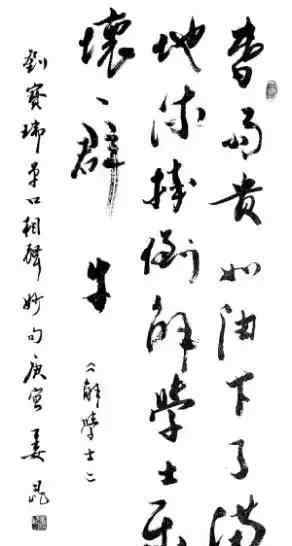 春雨貴如油下了滿
地流摔倒解學士乐
壞一群牛
《解學士》
劉寶瑞单口相聲妙句庚寅姜昆